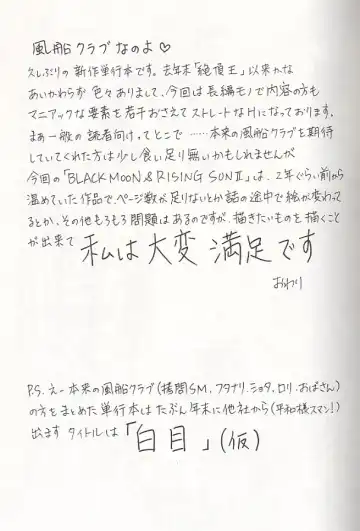 風船クラブなのよ♡
久しぶりの新作単行本です。去年末「絶頂王」以来かな
あいかわらず色々ありまして、今回は長編モノで内容の方も
マニアックな要素を若干おさえてストレートなHになっております。
まぁ一般の読者向けってとこで……本来の風船クラブを期待
していてくれた方は少し食い足り無いかもしれませんが
今回の「BLACK MOON & RISING SUN II」は、2年ぐらい前から
温めていた作品で、ページ数が足りないとか話の途中で絵が変わって
るとか、その他もろもろ問題はあるのですが、描きたいものを描くこと
が出来て 私は大変満足です
おわり
P.S. えー本来の風船クラブ(拷問SM、フタナリ、ショタ、ロリ、おばさん)
の方をまとめた単行本はたぶん年末に他社から(平和様スマン!)
出ます タイトルは「白目」(仮)